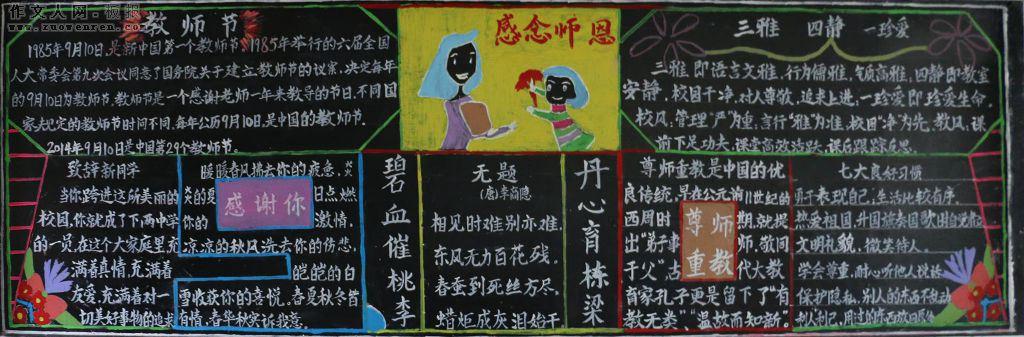 作文人网·板报
www.zuowenren.com
教师节
1985年9月10日,是新中国第一个教师节,1985年举行的六届全国
人大常委会第九次会议同意了国务院关于建立教师节的议案,决定每年
的9月10日为教师节,教师节是一个感谢老师一年来教导的节日,不同国
家规定的教师节时间不同,每年公历9月10日,是中国的教师节.
2014年9月10日是中国第29个教师节.
感念师恩
三雅 四静 一珍爱
三雅,即语言文雅,行为儒雅,气质高雅,四静即教室
安静,校园干净,对人尊敬,追求上进,一珍爱即珍爱生命.
校风、管理"严"为重,言行"雅"为准,校园"净"为先,教风,课
前下足功夫,课堂高效活跃,课后跟踪反思.
致辞新同学
当你跨进这所美丽的
校园,你就成了下西中学
的一员,在这个大家庭里充
满着真情,充满着
友爱,充满着对一
切美好事物的追求
暖暖春风揣去你的疲惫,炎
炎的夏日点燃
你的激情,
凉凉的秋风洗去你的伤悲,
皑皑的白
雪收获你的喜悦,春夏秋冬皆
有情,春华秋实诉我意.
感谢你
碧血催桃李
无题
(唐)李商隐
相见时难别亦难,
东风无力百花残.
春蚕到死丝方尽,
蜡炬成灰泪始干
丹心育栋梁
尊师重教是中国的优
良传统,早在公元前11世纪的
西周时期,就提
出"弟子事师,敬同
于父"古代大教
育家孔子更是留下了"有
教无类""温故而知新".
尊师
重教
七大良好习惯
勇于表现自己,生活比较有序.
热爱祖国,升国旗奏国歌时自觉肃立
文明礼貌,微笑待人.
学会尊重,耐心听他人说话
保护隐私,别人的东西不乱动
利人利己,用过的东西放回原处